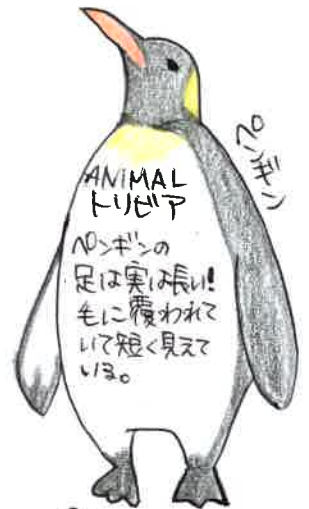 ANIMAL
トリビア
ペンギン
ペンギンの
足は実は長い!
毛に覆われて
いて短く見えて
いる。